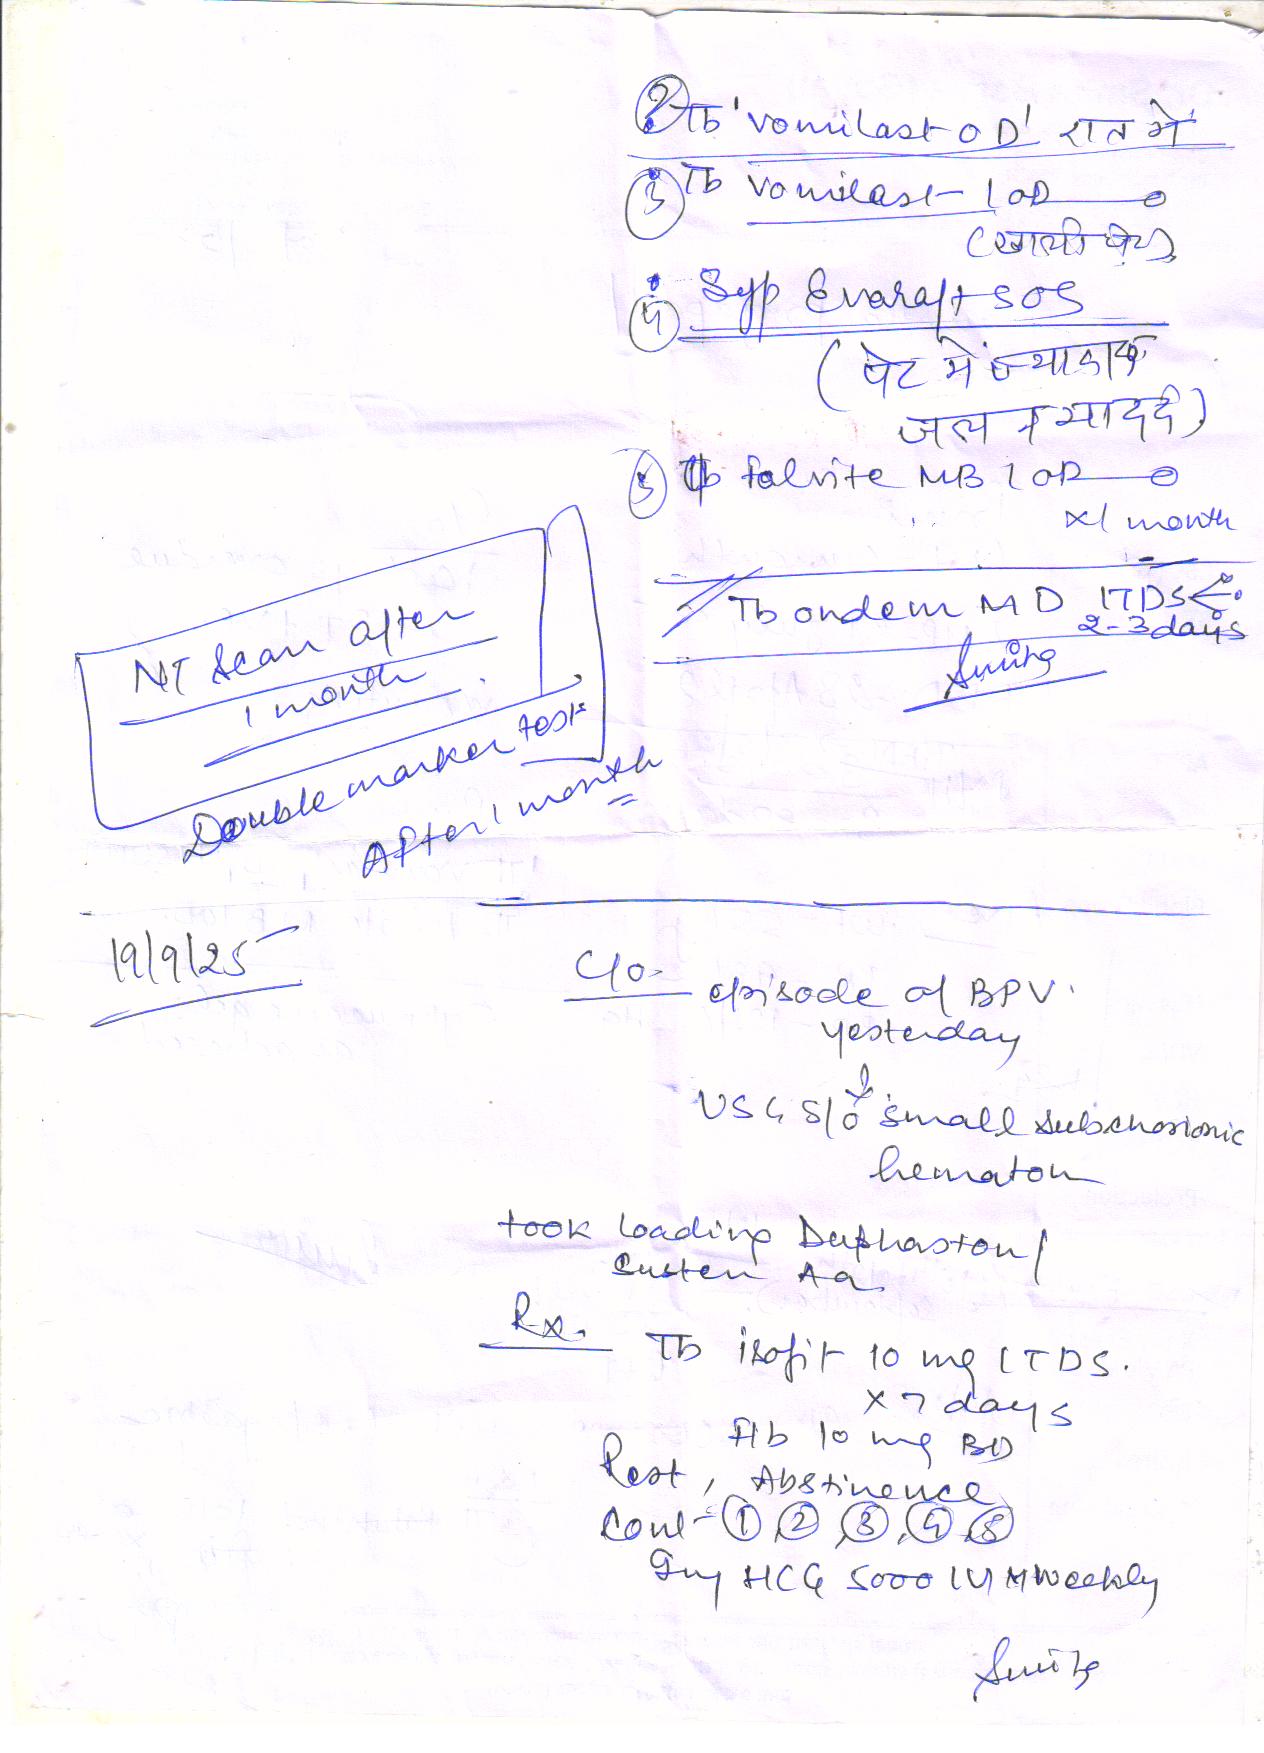 ② Tb 'vomilast OD' रात मे
③ Tb vomilast 1 OD
(खाली पेट)
④ Syp Evaraft SOS
(पेट मे ज्यादा
जलन या दर्द)
⑤ Tb folvite MB 1 OD
x 1 month
Tb ondem MD 1 TDS
2-3 days
NT Scan after
1 month
Double marker test
After 1 month
19/9/25
C/o - episode of BPV.
yesterday
USG S/o small subchorionic
hematom
took loading Duphaston /
Susten
Rx.
Tb isofit 10 mg 1 TDS.
x 7 days
10 mg BD
Rest, Abstinence
Cont - ① ② ③, ④, ⑤
Inj HCG 5000 IU IM Weekly